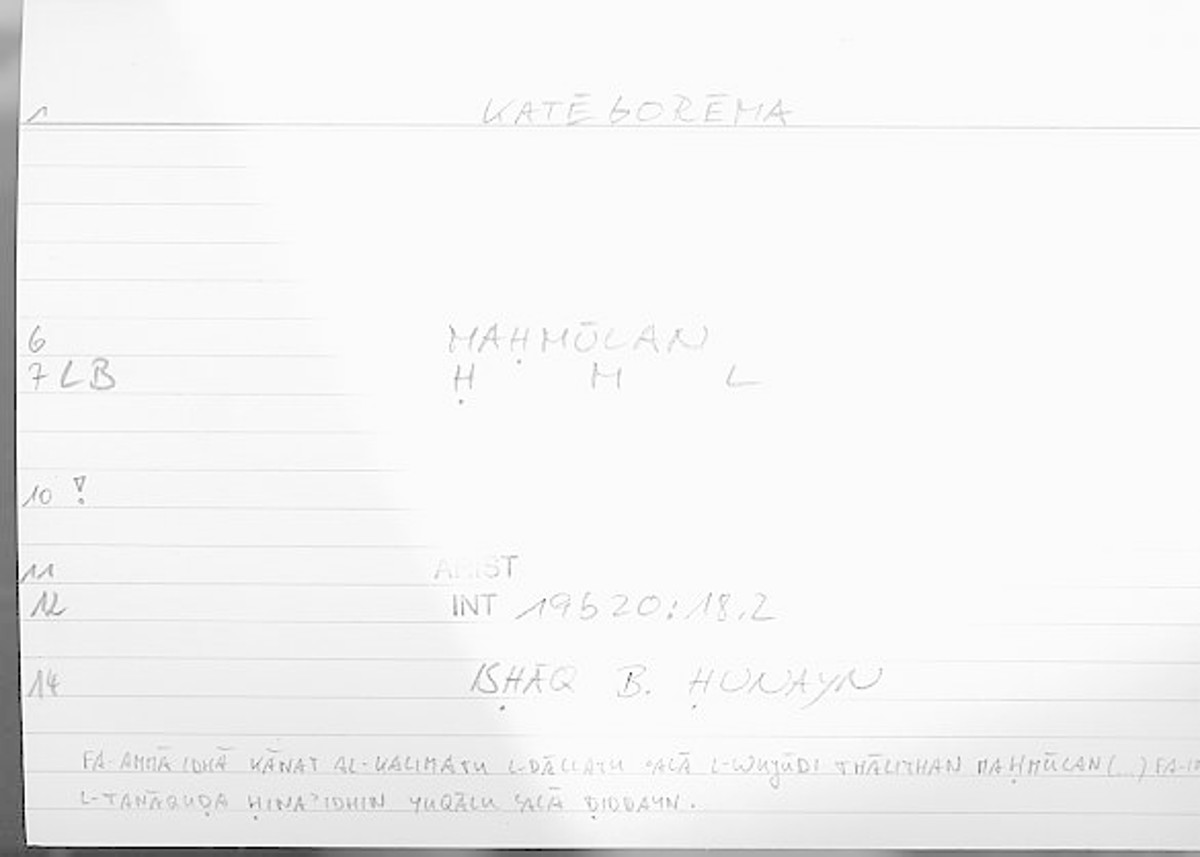 1 KATĒGORĒMA
6 MAḤMŪLAN
7 LB Ḥ M L
10 !
11 ARIST
12 INT 19b20:18.2
14 ISḤĀQ B. ḤUNAYN
FA-AMMĀ IDHĀ KĀNAT AL-KALIMATU L-DĀLLATU ʿALĀ L-WUJŪDI THĀLITHAN MAḤMŪLAN (...) FA-
L-TANĀQUḌA ḤINAʾIDHIN YUQĀLU ʿALĀ ḌIDDAYN.